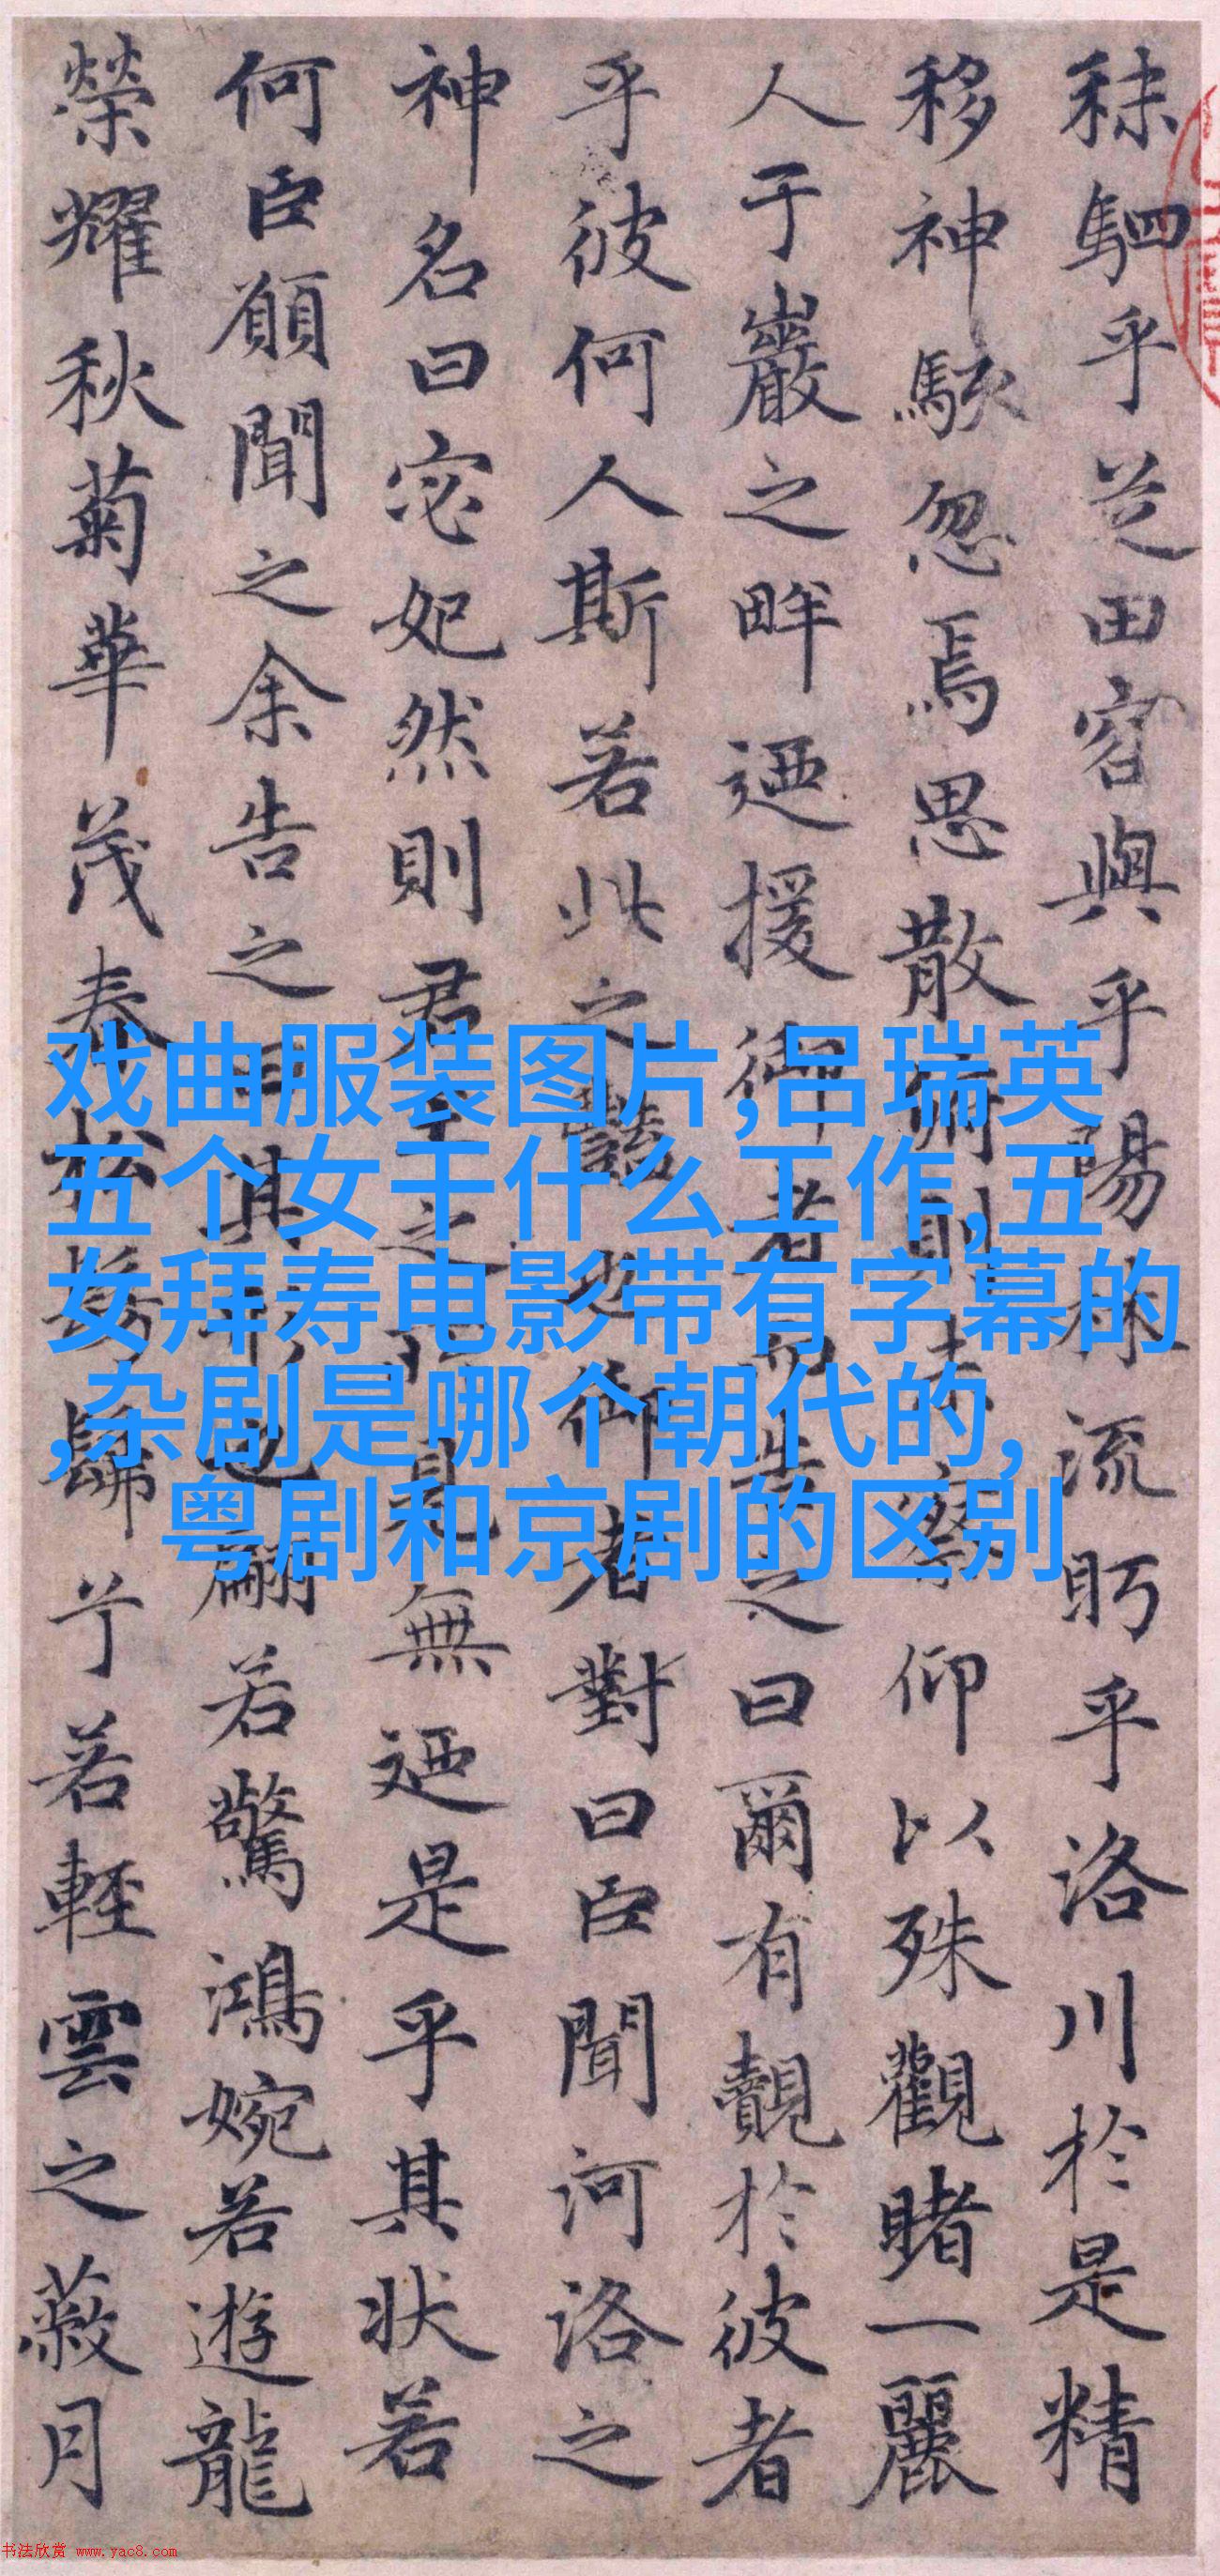 秣駟乎芝田容與乎陽林流眄乎洛川於是精
移神駭忽焉思散俯則未察仰以殊觀睹一麗
人于巖之畔迺援御者而告之曰爾有覿於彼者
乎彼何人斯若此之豔也御者對曰臣聞河洛之
神名曰宓妃然則君王之所見無迺是乎其狀若
何臣願聞之余告之曰其形也翩若驚鴻婉若遊龍
榮耀秋菊華茂春松髣髴兮若輕雲之蔽月
戏曲服装图片,吕瑞英
五个女干什么工作,五
女拜寿电影带有字幕的
,杂剧是哪个朝代的,
粤剧和京剧的区别
书法欣赏 www.yac8.com